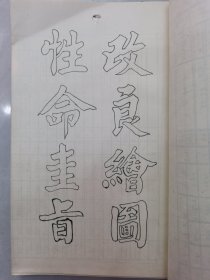 改良繪圖
性命圭旨